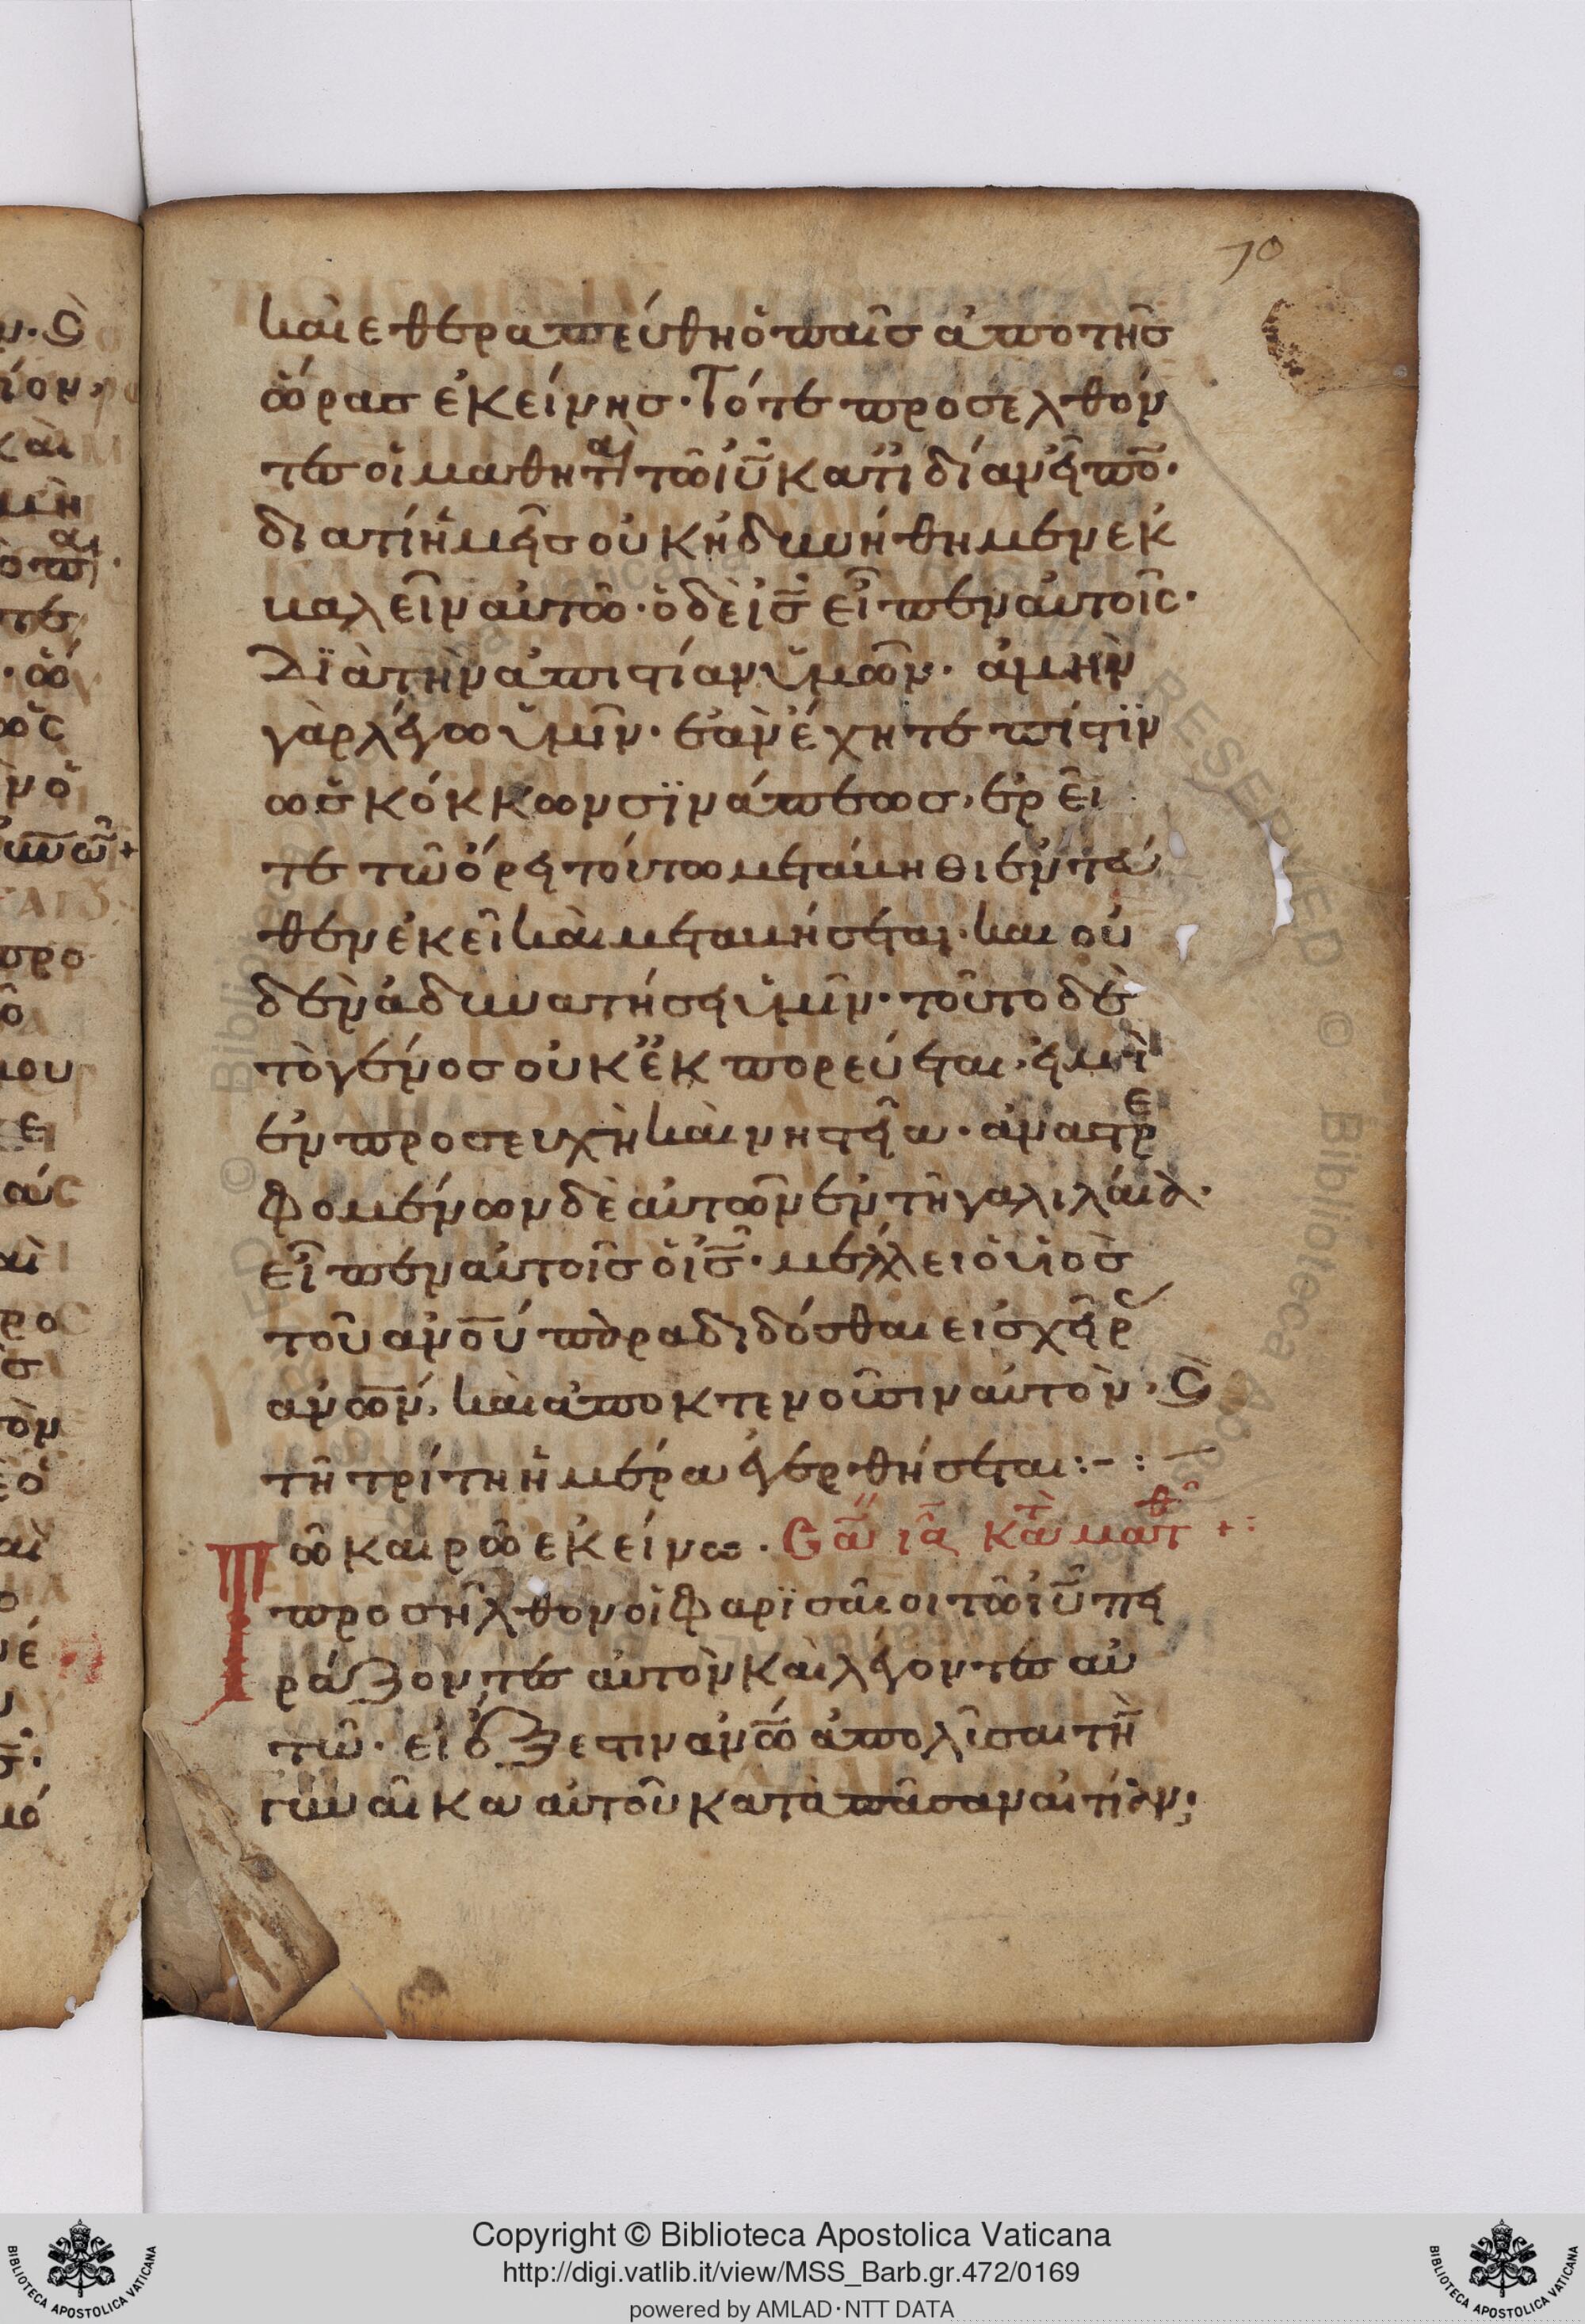 70
καὶ εθεραπεύθη ὁ παῖσ ἀπο τῆσ
ὥρασ ἐκείνησ· Τότε προσελθόν
τεσ οἱ μαθητ(αὶ) τῶ ἰῦ κατ' ἰδίαν εἶπον·
διατί ἡμεῖσ οὐκ ἠδυνήθημεν ἐκ
βαλεῖν αυτῶ· ὁ δὲ ἰσ̅ εἶπεν αὐτοῖς·
Διὰ τὴν ἀπιστίαν ὑμῶν· ἀμὴν
γὰρ λέγω ὑμῖν· ἐὰν ἔχητε πίστϊν
ωσ κόκκων σϊνάπεωσ, ἐρεῖ
τε τῶ ὄρει τούτω μετάβηθι ἐντεύ
θεν ἐκεῖ καὶ μεταβήσεται· και οὐ
δὲν ἀδυνατήσει ὑμῖν· τοῦτο δὲ
τὸ γένοσ οὐκ ἐκπορεύεται, εἰ μὴ
ἐν προσευχὴ καὶ νηστεῖα· ἀναστρε
φομένων δὲ αὐτῶν ἐν τῆ γαλιλάια·
εἶπεν αὐτοῖσ ὁ ἰσ̅· μέλλει ὁ υἱὸσ
τοῦ ἀνο̅ύ παραδιδόσθαι εἰσ χεῖρ(ασ)
ανω̅ν, καὶ ἀποκτενοῦσιν αὐτὸν, ϛ̀
τῆ τρίτη ἡμέρα ἐγερθήσεται:- : —
Τῶ καιρῶ ἐκείνω· Cα ια κα τὰ ματθ + :
προσῆλθον οἱ φαρϊσᾶιοι τῶ ἰῦ πει
ράζοντεσ αὐτὸν καὶ λέγοντεσ αὐ
τῶ· εἰ ἔξεστιν ανω̅ ἀπολῦσαι τὴν
γυναῖκα αὐτοῦ κατὰ πᾶσαν αἰτίαν;
Copyright © Biblioteca Apostolica Vaticana
http://digi.vatlib.it/view/MSS_Barb.gr.472/0169
powered by AMLAD·NTT DATA
BIBLIOTECA APOSTOLICA VATICANA
BIBLIOTECA APOSTOLICA VATICANA